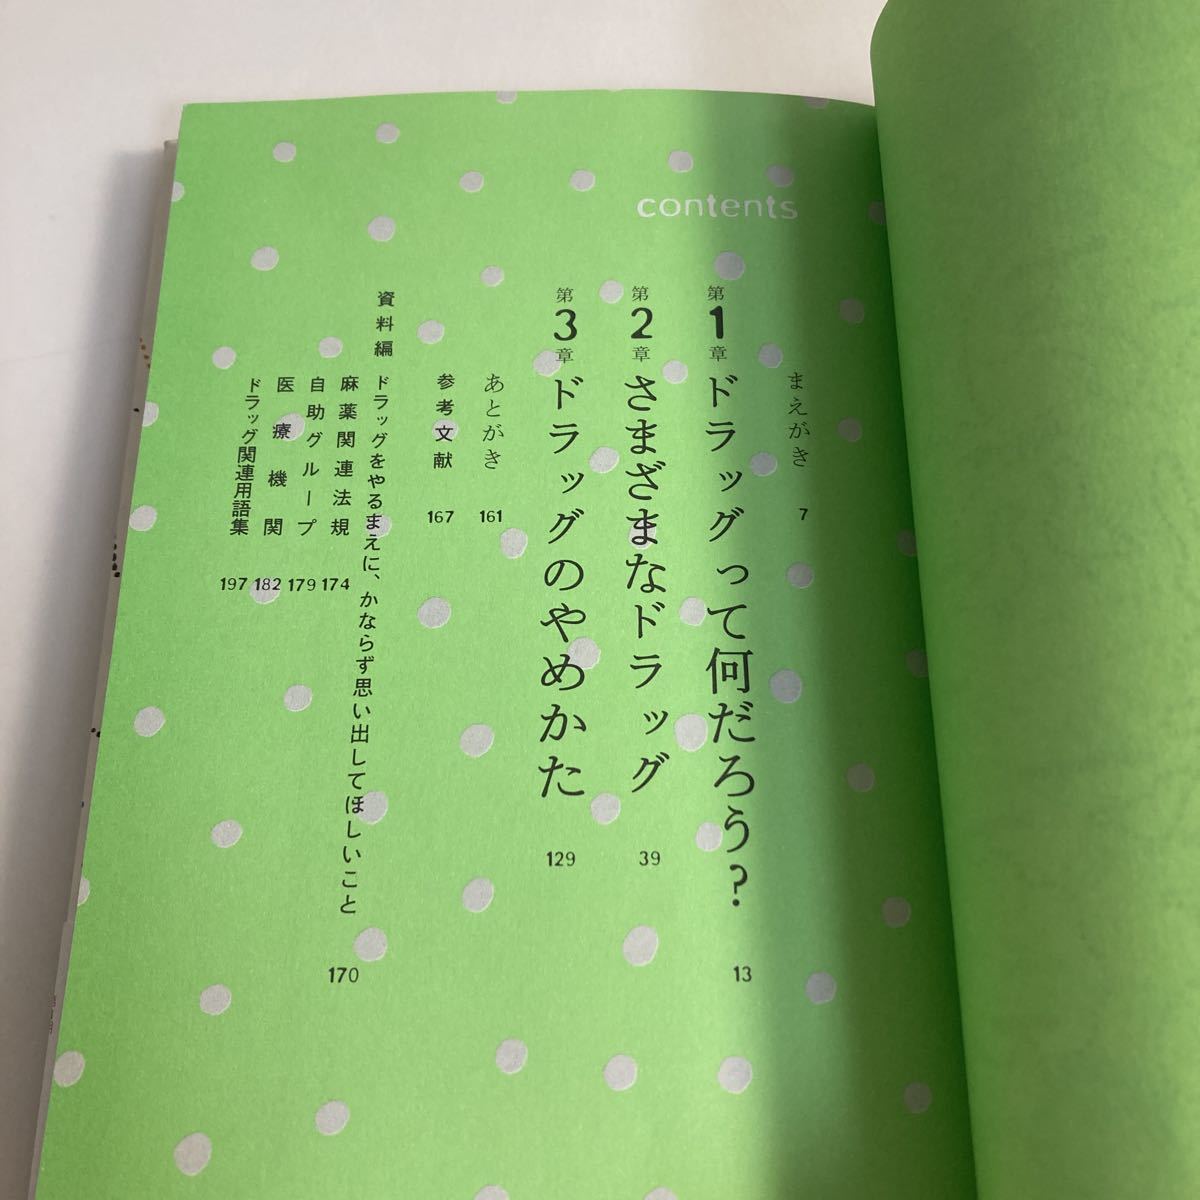 contents
まえがき 7
第1章 ドラッグって何だろう? 13
第2章 さまざまなドラッグ 39
第3章 ドラッグのやめかた 129
あとがき 161
参考文献 167
資料編 ドラッグをやるまえに、かならず思い出してほしいこと 170
麻薬関連法規 174
自助グループ 179
医療機関 182
ドラッグ関連用語集 197